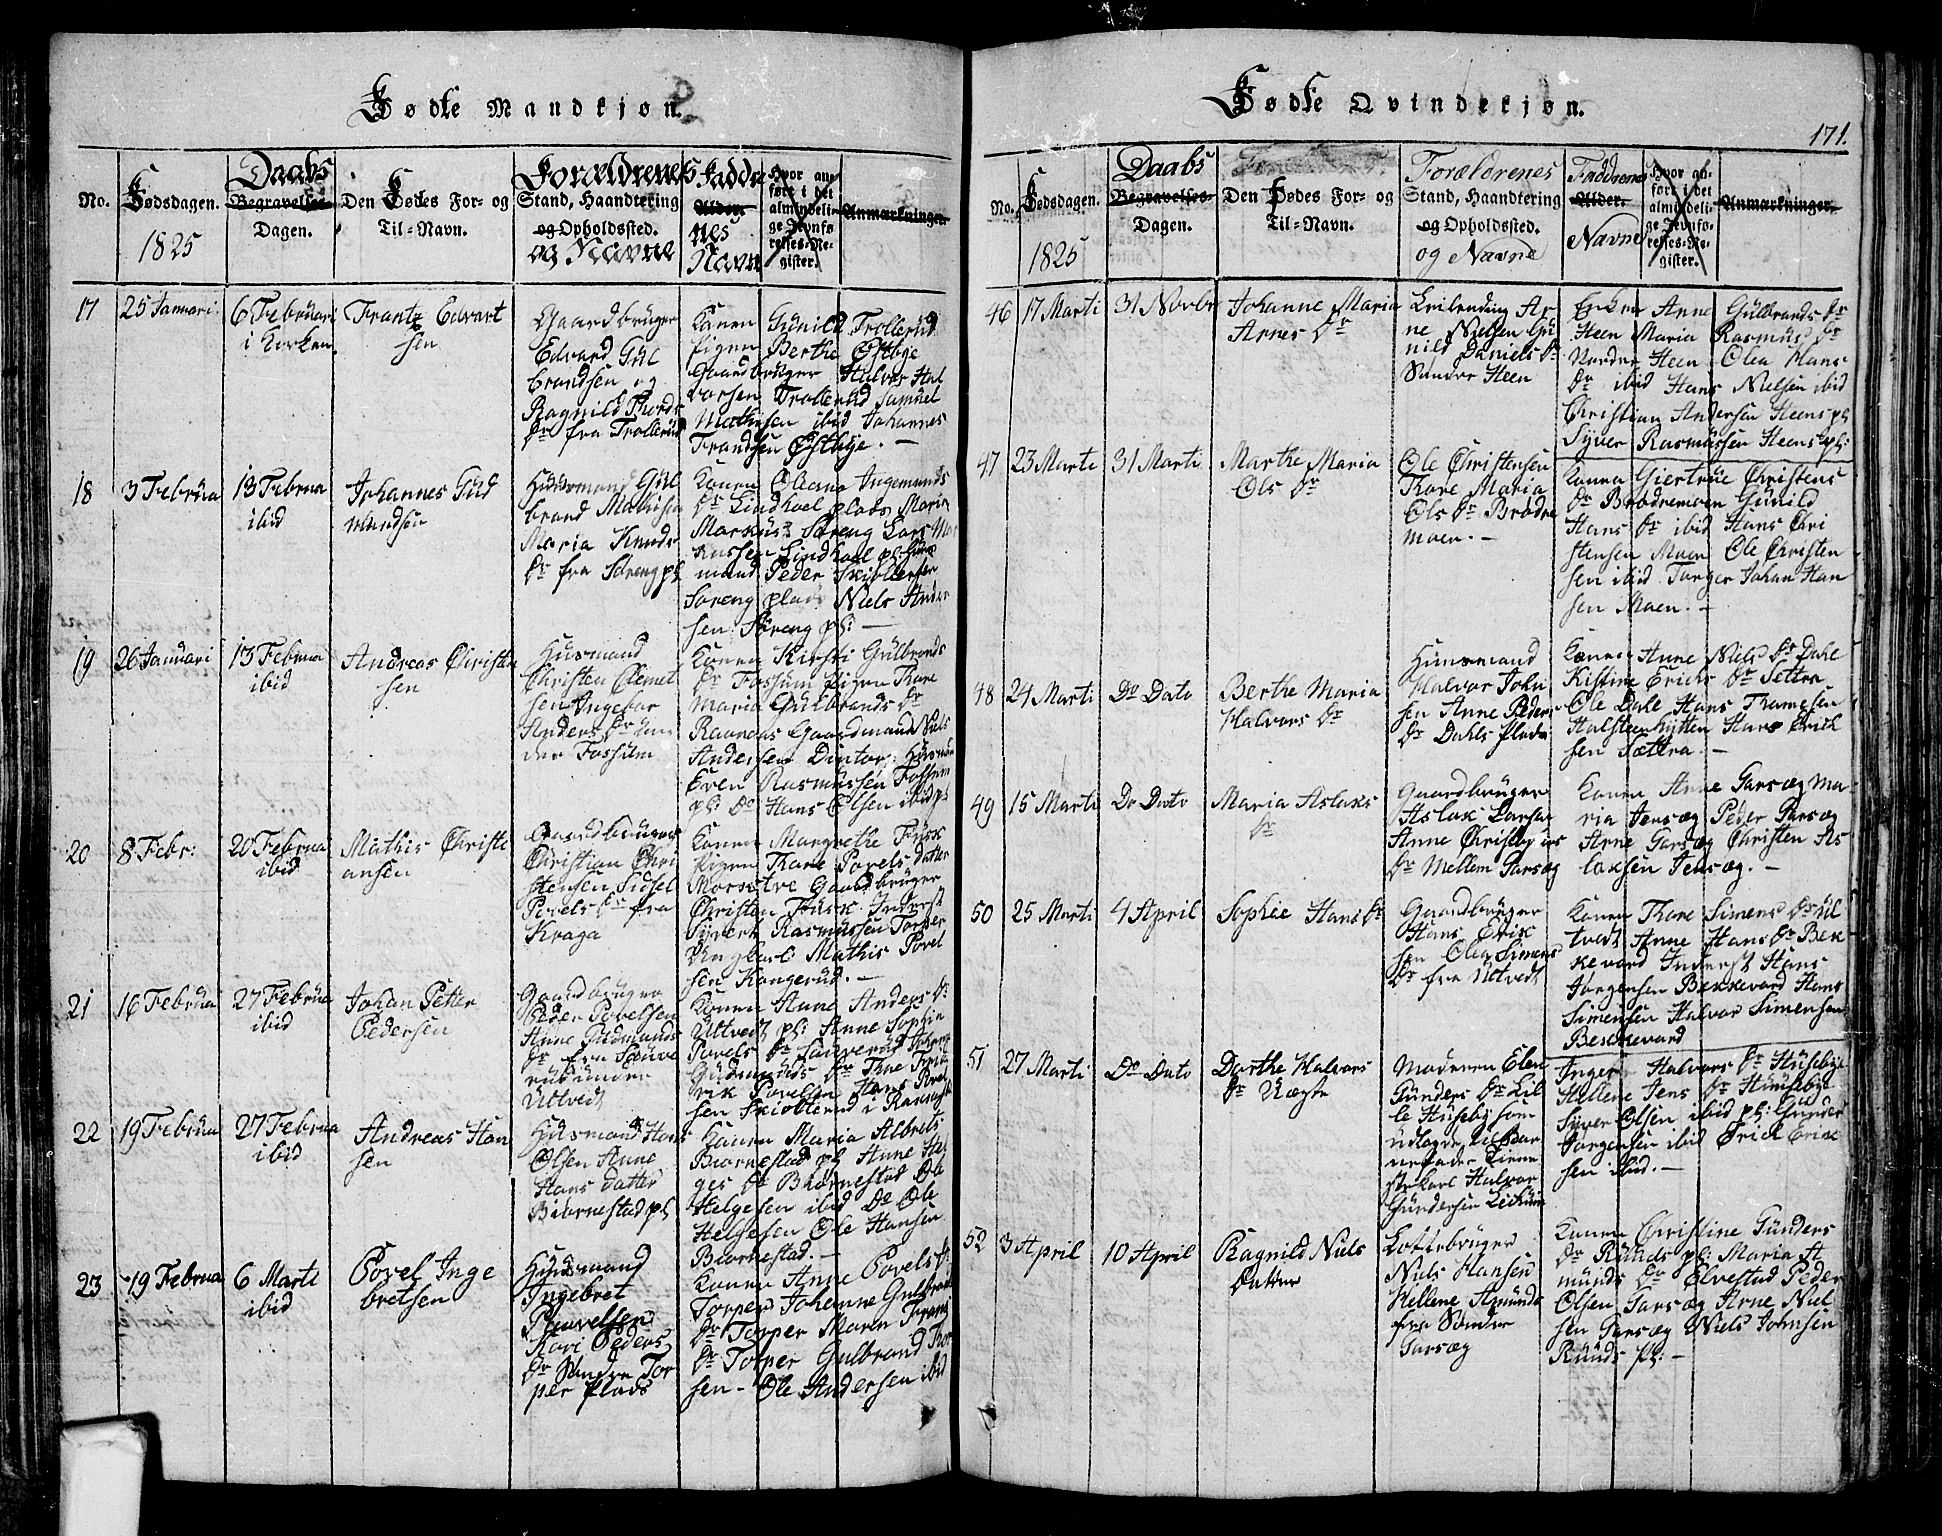 Fødte Mandkjøn.
No.
Fødsdagen.
1825
Daabs
Begravelses-
Dagen.
Den Fødes For- og
Til-Navn.
Forældrenes
Stand, Haandtering
og Opholdssted.
og Navne
Fadder
Alder.
nes
Navne
Hvor an-
ført i det
almindeli-
ge Jevnfø-
relses-Re-
gister.
Anmærkninger.
17
25 Januari
6 Februari
i Kirken
Frantz Edvart
sen
Gaardbruger
Edvard Gul
brandsen og
Ragnild Thords
Dr fra Trollerud
Konen Gunild Trollerud
Pigen Berthe Østbye
Gaardbruger Halvor Hal
vorsen Trollerud Samuel
Mathisen ibid Johannes
Frandsen Østbye. —
18
3 Februa
13 Februa
ibid
Johannes Gud
mundsen
Huusmand Gul
brand Mathisen
Maria Knuds
Dr fra Soreng pl
Konen Oleana Ingemunds
Dr Lindhoel plads Maria
Markus Soreng Lars Mar
kussen Lindhoel pl: Huus
mand Peder Skiollersen
Soreng plads Niels Ander
sen Soreng pl: —
19
26 Januari
13 Februa
ibid
Andreas Christen
sen
Husmand
Christen Clemet
sen Ingebor
Anders Dr un
der Fossum
Konen Kirsti Gulbrands
Dr Fossum Pigen Thore
Maria Gulbrands Dr
Raaneas Gaardmand Niels
Andersen Dintorp: Husmand
Even Rasmussen Fossum
pl: Do Hans Olsen ibid pl
20
8 Febr:
20 Februa
ibid
Mathis Christi
ansen
Gaardbruger
Christian Chri
stensen Sidsel
Povels Dr fra
Kraga
Konen Margrethe Fusk
Pigen Thore Povels datter
Mørstre Gaardbruger
Christen Fusk Inderst
Syvert Rasmussen Torper
Ungkarl Mathis Povel
sen Kongerud. —
21
16 Februa
27 Februa
ibid
Johan Petter
Pedersen
Gaardbruger
Peder Povelsen
Anne Gudmunds
Dr fra Sauve
rud under
Utvedt
Konen Anne Anders Dr
Utvedt pl: Anne Sophia
Povels Dr Sauverud
Gudmunds Dr
rik Povelsen Hans Povel
sen Skiollerud i
22
19 Februa
27 Februa
ibid
Andreas Han
sen
Husmand Hans
Olsen Anne
Hans datter
Biørnestad pl
Konen Maria Albrets
Biørnestad pl Anne Hel
ges Dr Biørnestad Do
Helgesen ibid Do Ole
Helgesen Ole Hansen
Biørnestad. —
23
19 Februa
6 Marti
ibid
Povel Inge
bretsen
Huusmand
Ingebret
Paavelsen
Kari Peders
Dr Søndre Tor
per Plads
Konen Anne Povels Dr
Torper Johanne Gulbrands
Dr Torper Maren Frands
Dr Torper Gulbrand Thor
sen - Ole Andersen ibid
Fødte Qvindekjøn.
171.
No.
Fødsdagen.
1825
Daabs
Begravelses-
Dagen.
Den Fødes For- og
Til-Navn.
Forældrenes
Stand, Haandtering
og Opholdssted.
og Navne
Faddrenes
Alder.
Navne
Hvor an-
ført i det
almindeli-
ge Jevnfø-
relses-Re-
gister.
Anmærkninger.
46
17 Marti
31 Novbr
Johanne Maria
Arnes Dr
Leilending Ar
ne Nielsen Gu
nild Daniels Dr
Søndre Heen
Enken Anne Gulbrands Dr
Heen Maria Rasmus Dr
Nordre Heen Olea Hans
Dr ibid Hans Nielsen ibid
Christian Andersen Heens pl
Syver Rasmussen Heens pl:
47
23 Marti
31 Marti
Marthe Maria
Ols Dr
Ole Christensen
Thore Maria
Ols Dr Brødre
moen. —
Konen Giertrue Christens
Dr Brødremoen Gunild
Hans Dr ibid Hans Chri
stensen Moen Ole Christen
sen ibid Torger Johan Han
sen Moen. —
48
24 Marti
Do Dato
Berthe Maria
Halvors Dr
Huusmand
Halvor John
sen Anne Peders
Dr Dahls Plads
Konen Anne Niels Dr Dahl
Kistine Erichs Dr Settra
Ole Dahl Hans Thomesen
Halsteenhytten Hans Erich
sen Sættra. —
49
15 Marti
Do Dato
Maria Aslaks
Dr
Gaardbruger
Aslak Larsen
Anne Christophers
Dr Mellem Garsøg
Konen Anne Garsøg Ma-
ria Jensøg Peder Garsøg
Arne Garsøg Christen As
laksen Jensøg. —
50
25 Marti
4 April
Sophie Hans Dr
Gaardbruger
Hans Erik
sen Olea Simens
Dr fra Utvedt
Konen Thore Simens Dr Ul
tvedt Anne Hans Dr Bek
kevard Inderst Hans
Jørgensen Bekkevard Hans
Simensen Halvor Simensen
Beskkevard
51
27 Marti
Do Dato
Dorthe Halvors
Dr Uægte
Moderen Elen
Gunders Dr Lil
le Huseby som
udlagde til Bar
nefader Tiene
stekarl Halvor
Gundersen
Inger Halvors Dr Huseby
Hellene Jens Dr Huuseby
Siver Olsen ibid pl: Gunder
Jørgensen ibid Erick Erik
sen ibid. —
52
3 April
10 April
Ragnild Niels
Datter
Lottebruger
Niels Hansen
Hellene Amunds
fra Søndre
Garsøg
Konen Christine Gunders
Dr Ruuds pl: Maria A
munds Dr Elvestad Peder
Olsen Garsøg Arne Niel
sen Garsøg Niels Johnsen
Ruuds pl: —